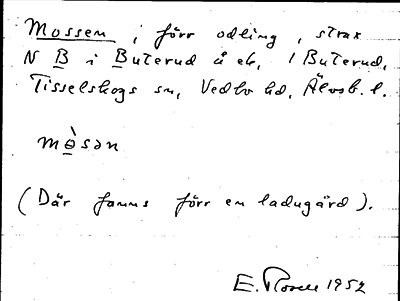 Mossen, förr odling, strax
N B i Buterud å ek. 1 Buterud,
Tisselskogs sn, Vedbo hd, Älvsb. l.
mò̱sən
(Där fanns förr en ladugård).
E. Rosell 1952